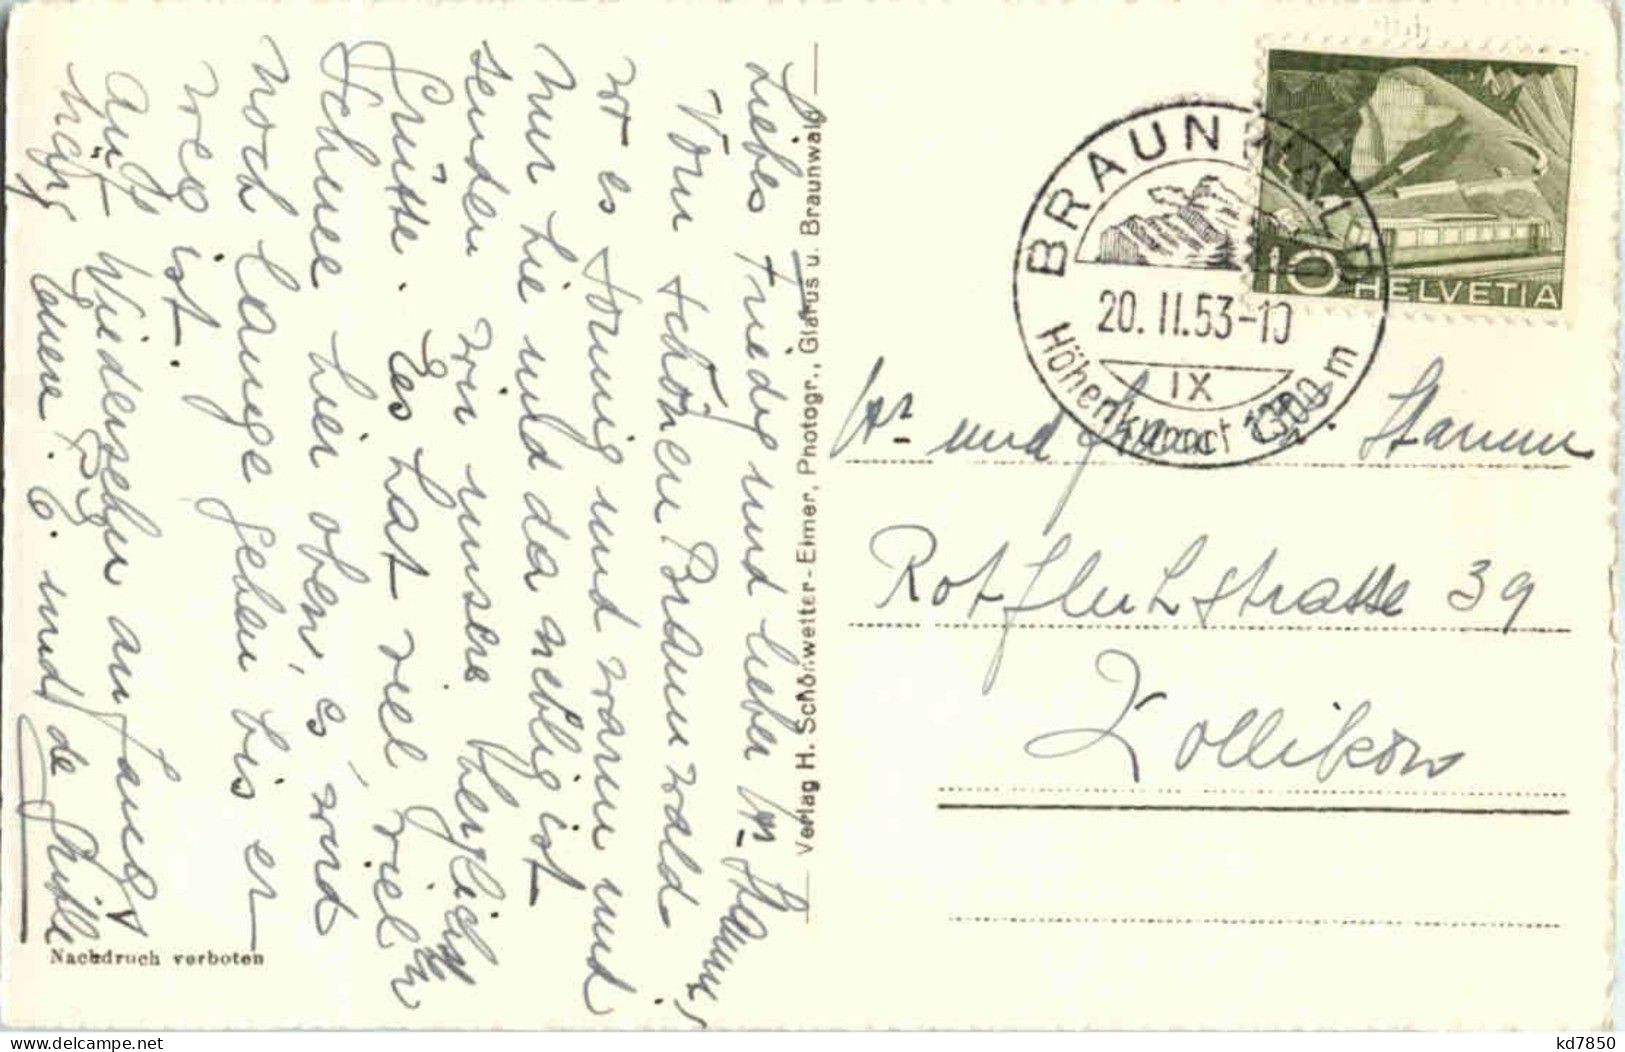 Liebes Friedy und lieber Hr. Stamm,
Vom schönen Braunwald
wo es sonnig und warm und
nur hie und da neblig ist
senden wir unsere herzlichen
Grüsse. Es hat viel, viel
Schnee hier oben, es wird
noch lange gehen bis er
weg ist.
Auf Wiedersehn anfangs
März
und
Nachdruch verboten
Verlag H. Schönwetter-Elmer, Photogr., Glarus u. Braunwald
BRAUNWALD
20. II. 53-10
IX
Höhenkurort 1300 m
10 HELVETIA
Hr. und Frau Stamm
Rotfluhstrasse 39
Zollikon
delcampe.net
kd7850